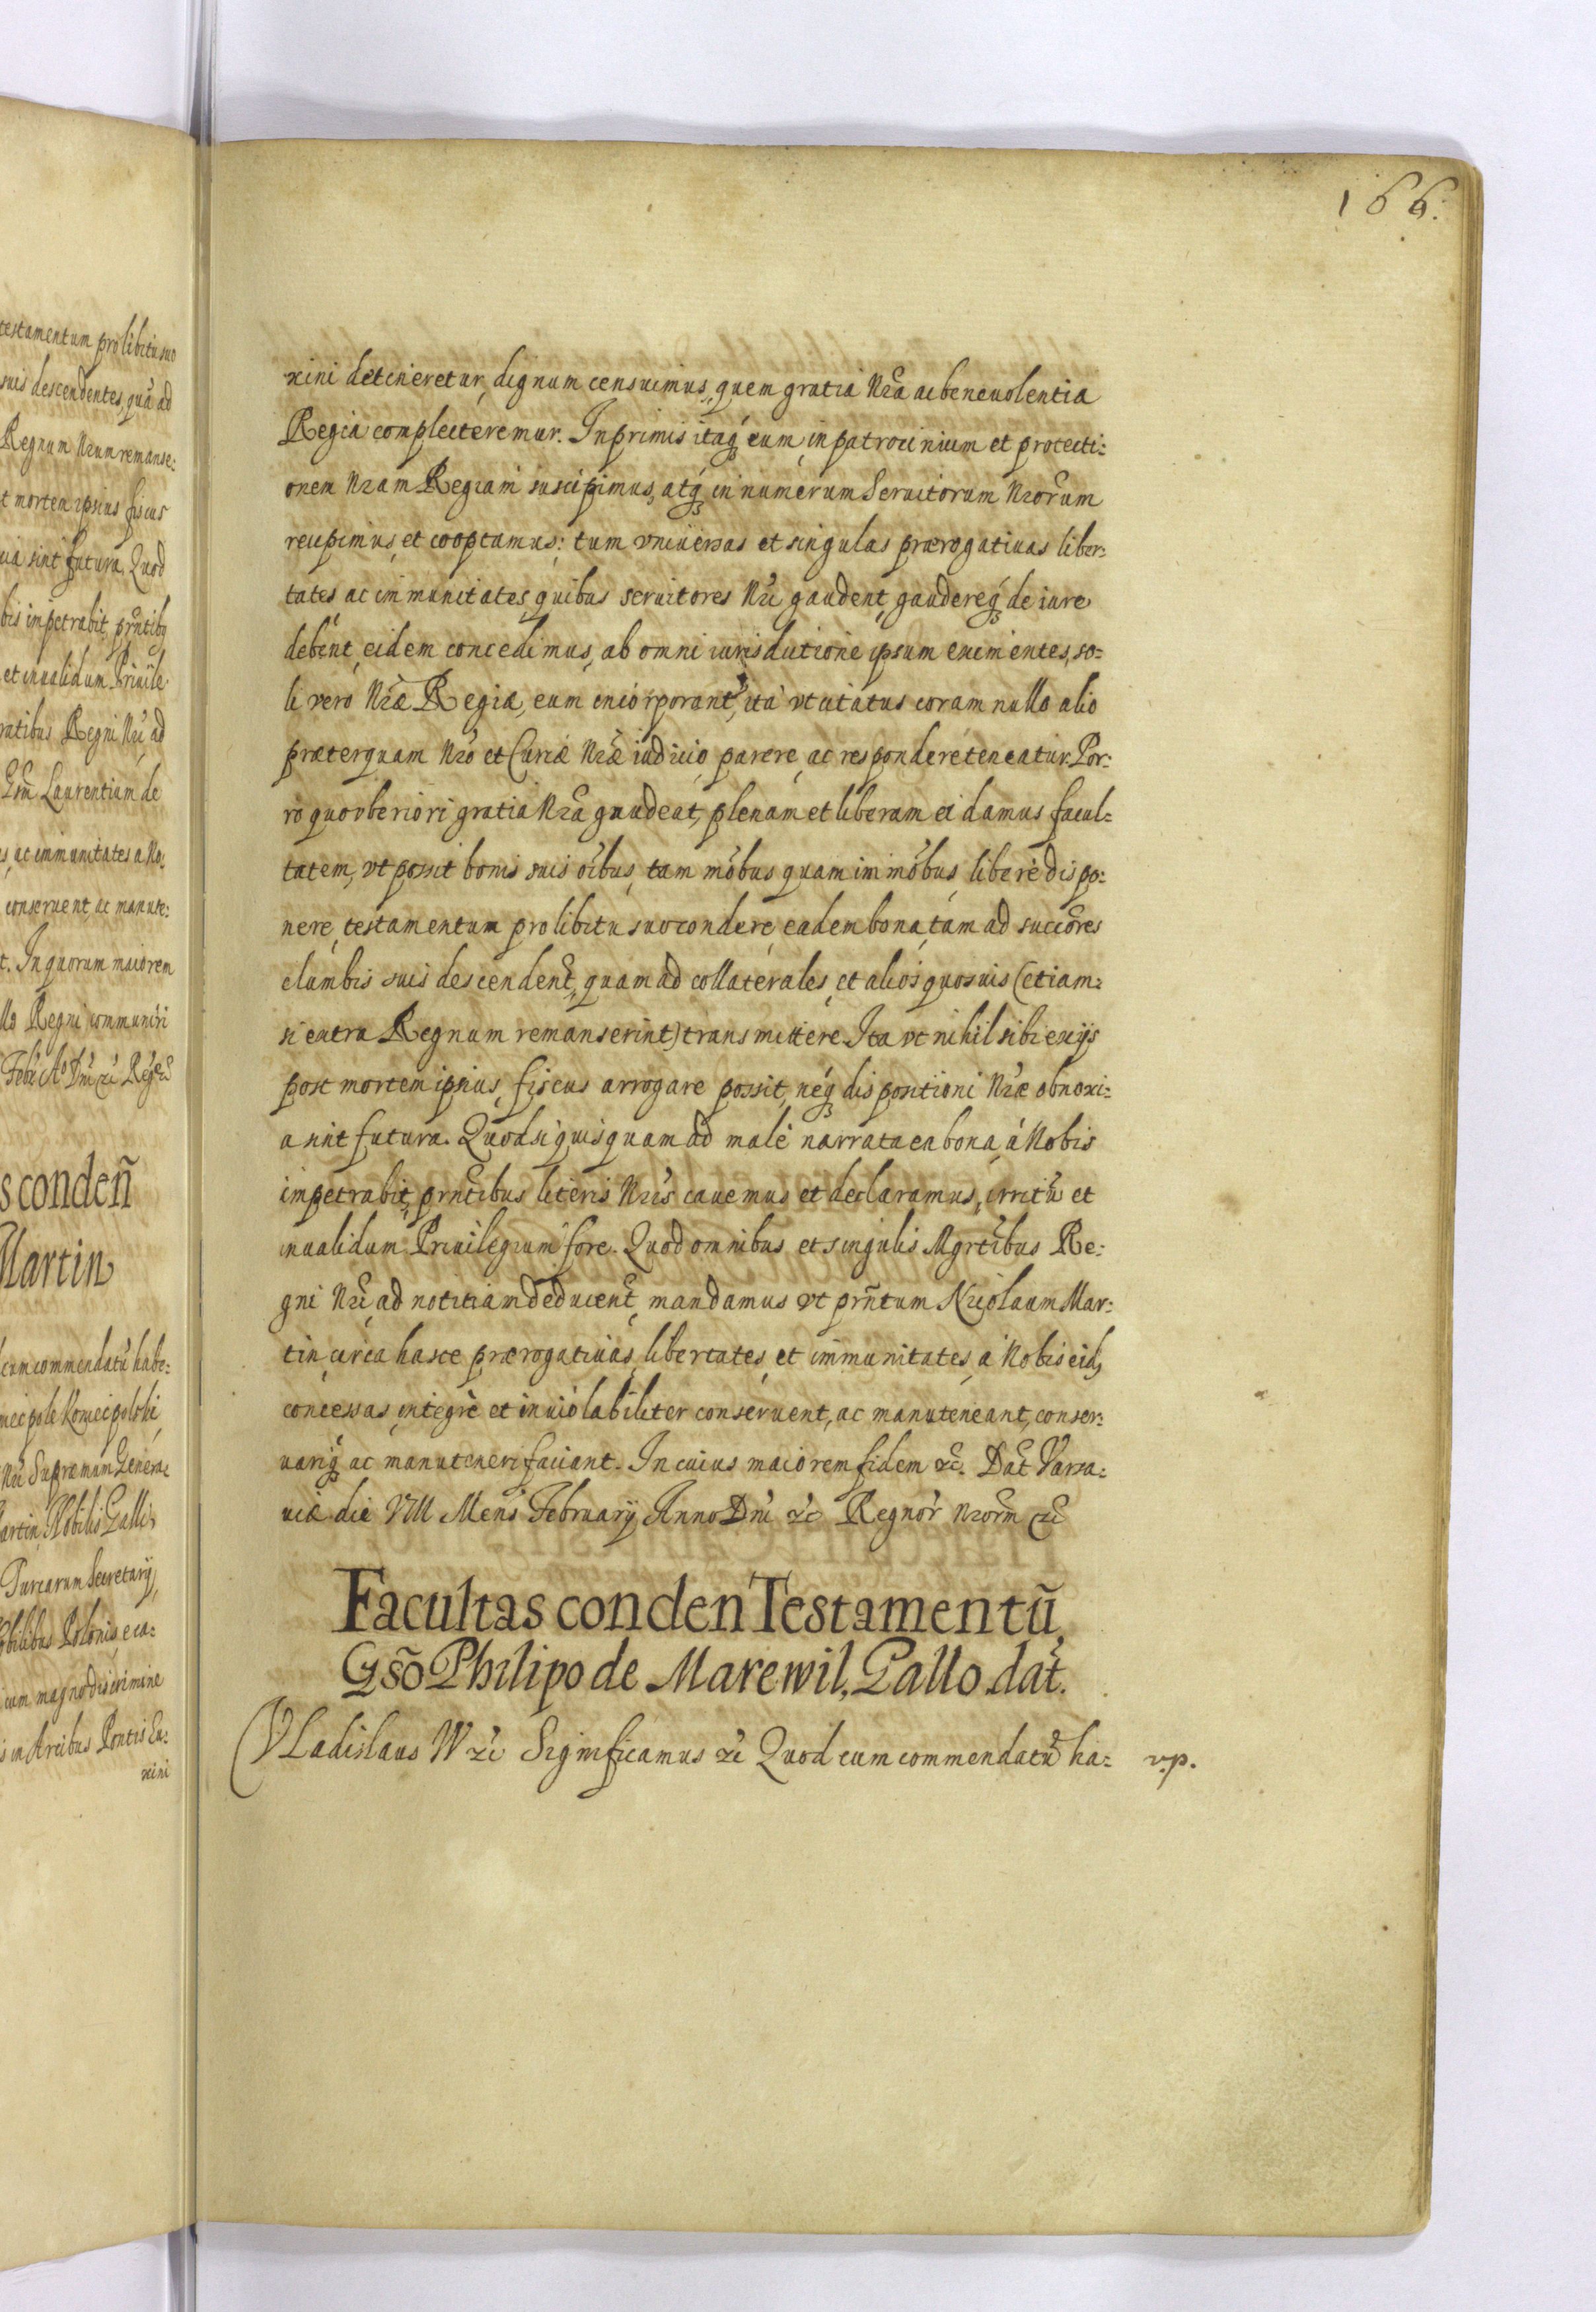 testamentum pro libitu suo
suis descendentes, quã ad
Regnum Nrum remanse:
t mortem ipsius fiscus
sint futura. Quod
bis impetrabit, prñtibq
et inualidum Priuile
ratibus Regni Nri, ad
Gsm Laurentium de
s, ac immunitates a No:
conseruent ac manute:
t. In quorum maiorem
Regni communiri
Febr. Ao Dni &c
s condeñ
Martin
cum commendatũ habe:
Koniecpolski
Nri Supremum Genera:
Martin, Nobilis Galli,
Turcarum Secretarij,
Nobilibus Polonis, e ca:
cum magno discrimine
s in Arcibus Ponti Eu:
xini
166.
xini detineretur, dignum censuimus, quem gratia Nra ac beneuolentia
Regia complecteremur. Inprimis itaq; eum, in patrocinium et protecti:
onem Nram Regiam suscipimus, atq; in numerum Seruitorum Nrorum
recipimus, et cooptamus: tum vniuersas et singulas prærogatiuas liber:
tates ac immunitates, quibus seruitores Nri gaudent, gaudereq; de iure
debent, eidem concedimus, ab omni iurisdictione ipsum eximentes, so:
li vero Nræ Regiæ, eum incorporant, ita vt citatus coram nullo alio
præterquam Nro et Curiæ Nræ iudicio, parere, ac respondere teneatur. Por:
ro quo vberiori gratia Nra gaudeat, plenam et liberam ei damus facul:
tatem, vt possit bonis suis oibus, tam mobus quam immobus, libere dispo:
nere, testamentum pro libitu suo condere, eadem bona, tam ad succores
e lumbis suis descendent, quam ad collaterales, et alios quosuis (etiam:
si extra Regnum remanserint) transmittere. Ita vt nihil sibi ex ijs
post mortem ipsius, fiscus arrogare possit, neq; dispositioni Nræ obnoxi:
a sint futura. Quod si quisquam ad male narrata ea bona, á Nobis
impetrabit, prntibus literis Nris cauemus et declaramus, irritũ et
inualidum Priuilegium fore. Quod omnibus et singulis Mgrtibus Re:
gni Nri, ad notitiam deducent, mandamus vt prñtum Nicolaum Mar:
tin, circa hasce prærogatiuas, libertates, et immunitates, a Nobis eid,
concessas, integre et inuiolabiliter conseruent, ac manuteneant, conser:
uariq; ac manuteneri faciant. In cuius maiorem fidem &c. Dat Varsa:
uiæ die VIII Mens Februarij Anno Dni &c Regnor Nrorm &c
Facultas conden Testamentũ,
Gsõ Philipo de Marewil, Gallo dat.
VLadislaus IV &c Significamus &c Quod cum commendatũ ha: v.p.